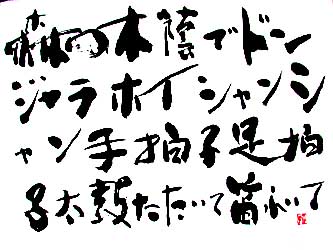 森の木陰でドーン
ジャラホイシャンシ
ャン手拍子足拍
子太鼓たたいて笛ふいて